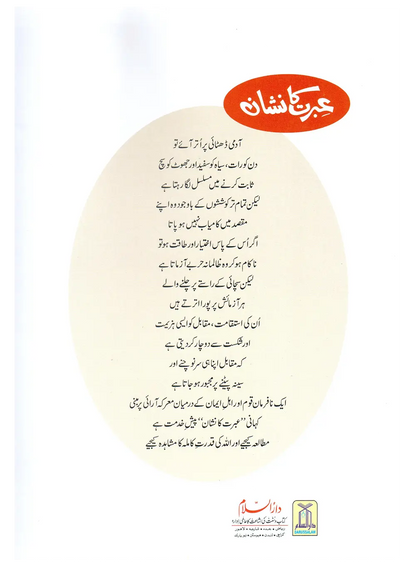 عبرت کا نشان
آدمی ڈھٹائی پر اُتر آئے تو
دن کو رات، سیاہ کو سفید اور جھوٹ کو سچ
ثابت کرنے میں مسلسل لگا رہتا ہے
لیکن تمام تر کوششوں کے باوجود وہ اپنے
مقصد میں کامیاب نہیں ہو پاتا
اگر اُس کے پاس اختیار اور طاقت ہو تو
ناکام ہو کر وہ ظالمانہ حربے آزماتا ہے
لیکن سچائی کے راستے پر چلنے والے
ہر آزمائش پر پورا اترتے ہیں
اُن کی استقامت، مقابل کو ایسی ہزیمت
اور شکست سے دوچار کر دیتی ہے
کہ مقابل اپنا ہی سر نوچنے اور
سینہ پیٹنے پر مجبور ہو جاتا ہے
ایک نافرمان قوم اور اہلِ ایمان کے درمیان معرکہ آرائی پر مبنی
کہانی "عبرت کا نشان" پیشِ خدمت ہے
مطالعہ کیجیے اور اللہ کی قدرتِ کاملہ کا مشاہدہ کیجیے
دارالسلام
کتاب و سنت کی اشاعت کا عالمی ادارہ
DARUSSALAM